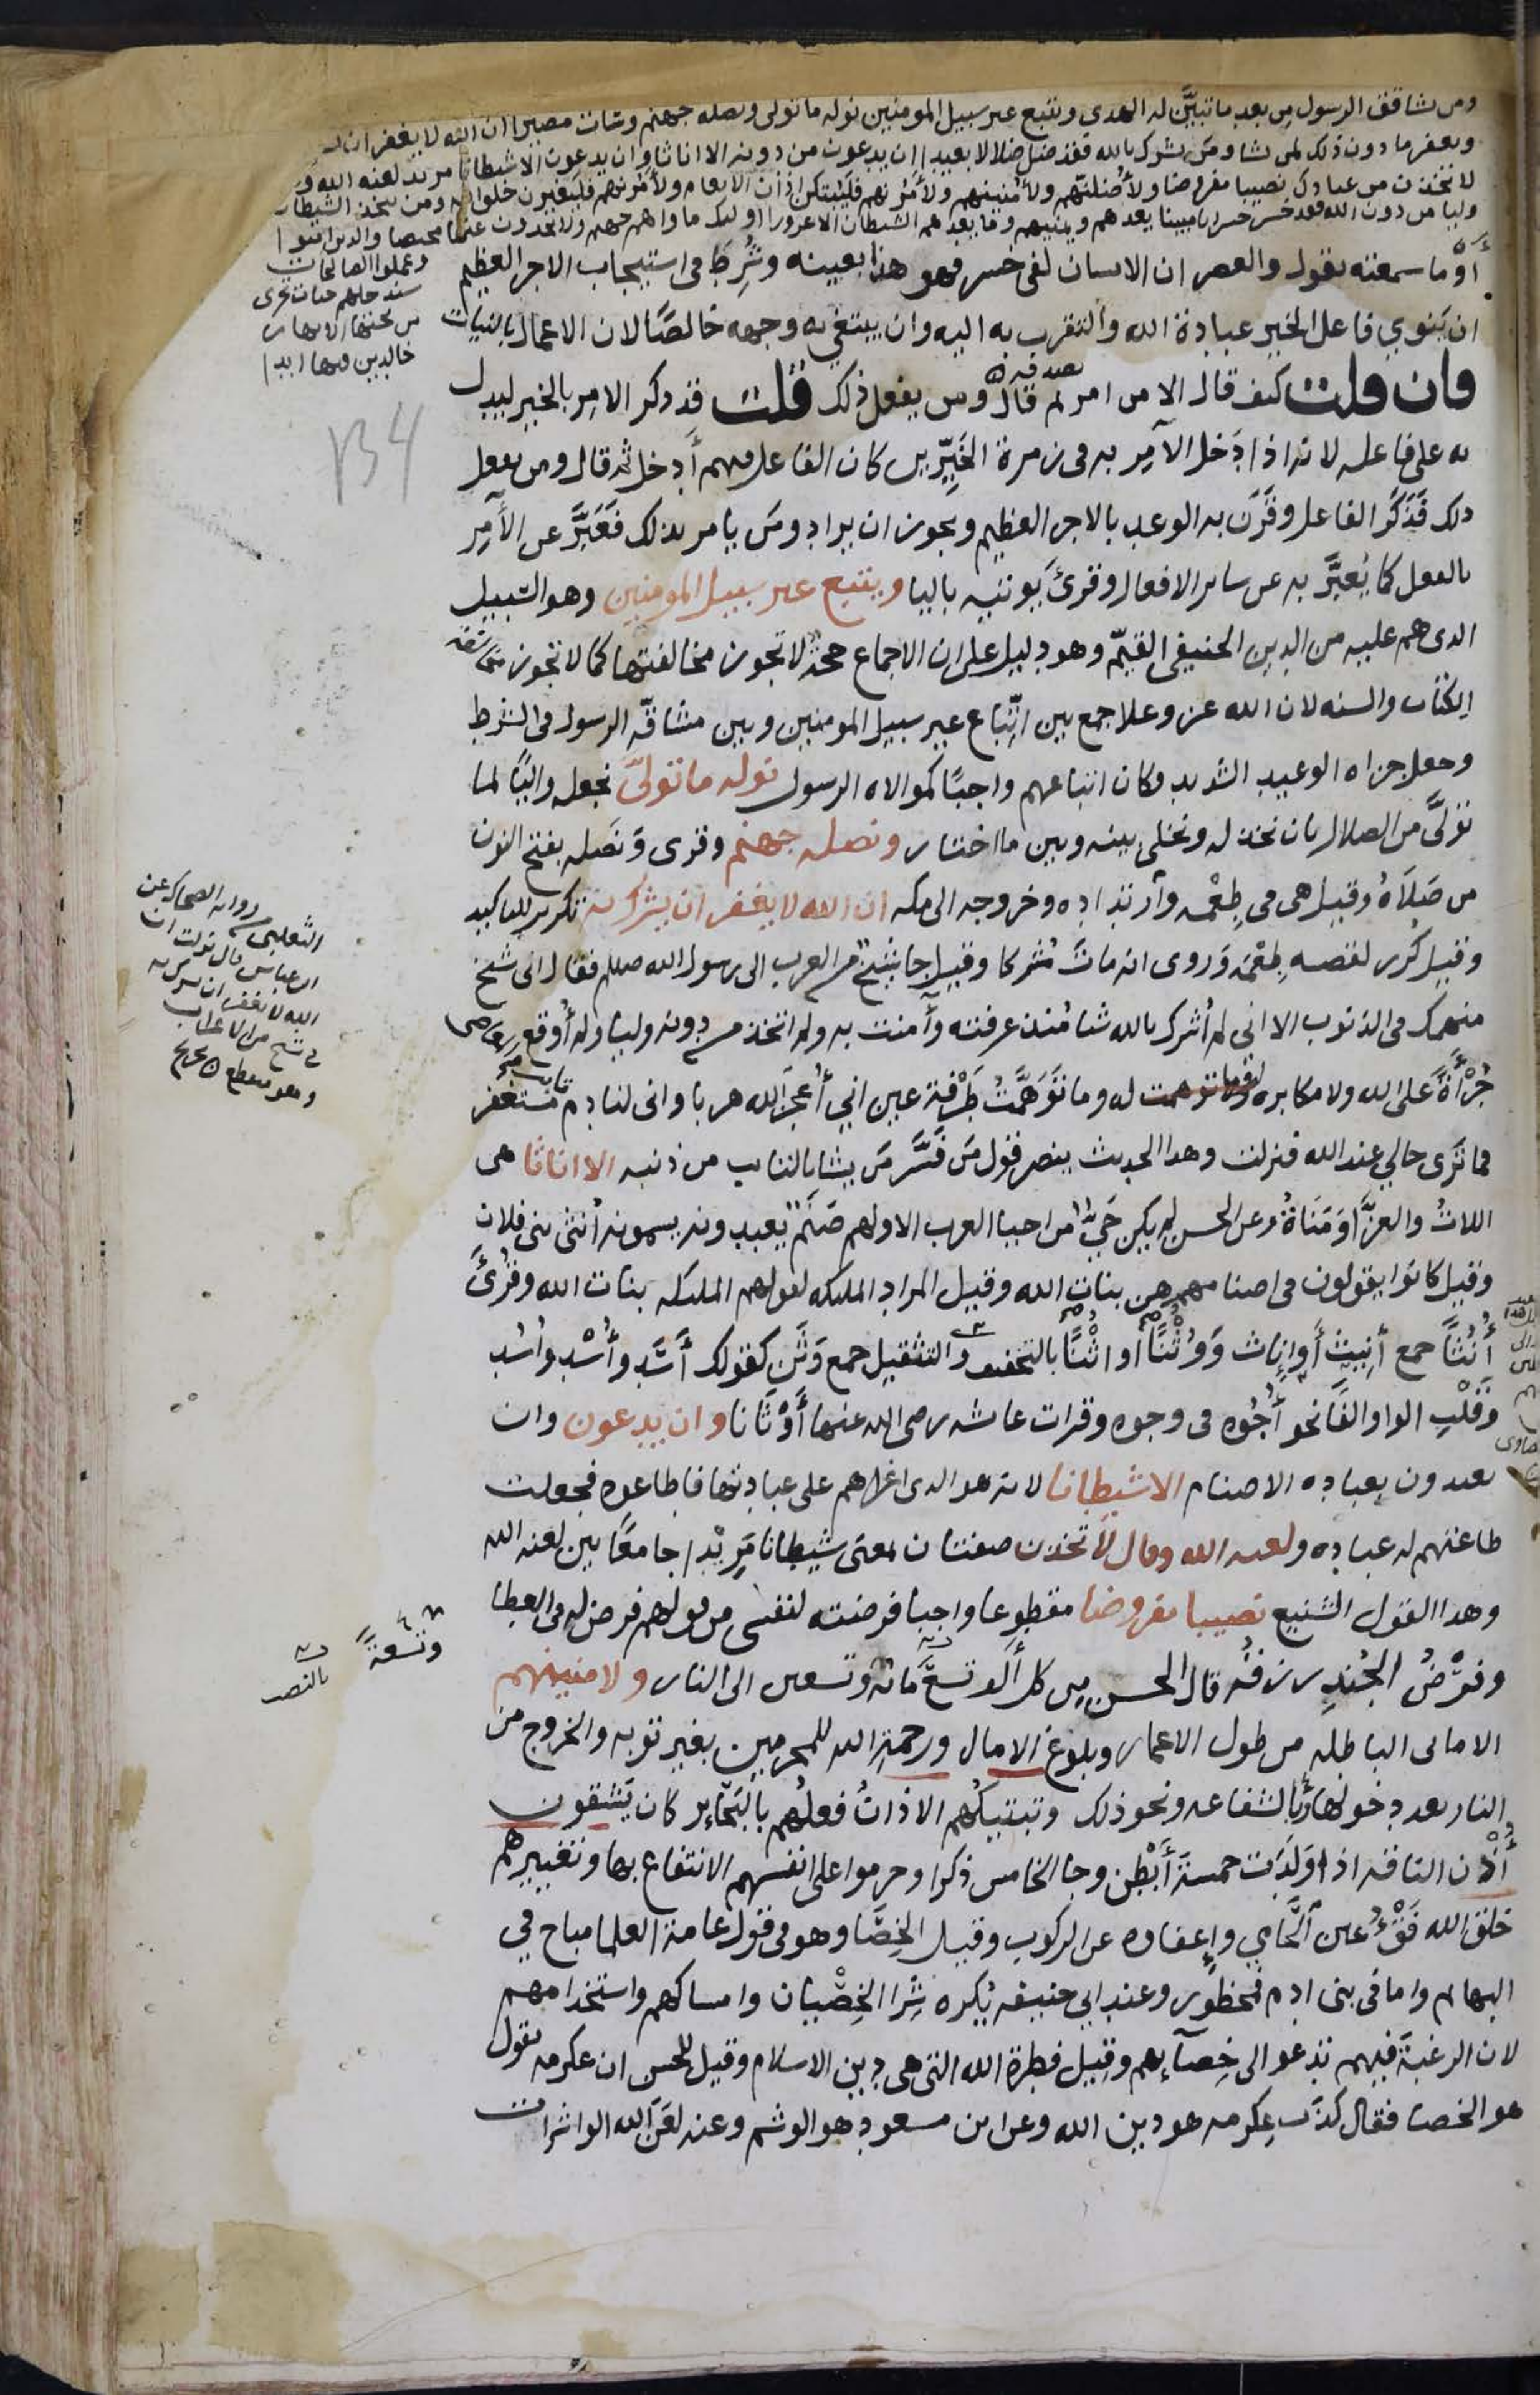 ومن يشاقق الرسول من بعد ما تبيَّن له الهدى ويتبع غير سبيل المومنين نوله ما تولى ونصله جهنم وساءت مصيرا ان الله لا يغفر ان
ويغفر ما دون ذلك لمن يشا ومن يشرك بالله فقد ضل ضلالا بعيدا ان يدعون من دونه الا اناثا وان يدعون الا شيطانا مريدا لعنه الله و
لاتخذن من عبادك نصيبا مفروضا ولأضلنهم ولأمنينهم ولآمرنهم فليبتكن اذان الانعام ولآمرنهم فليغيرن خلق الله ومن يتخذ الشيطان
وليا من دون الله فقد خسر خسرانا مبينا يعدهم ويمنيهم وما يعدهم الشيطان الا غرورا اوليك ماواهم جهنم ولا يجدون عنها محيصا والذين امنوا
وعملوا الصالحات
سندخلهم جنات تجرى
من تحتها الانهار
خالدين فيها ابدا
أوَما سمعته يقول والعصر ان الانسان لفى خسر فهو هذا بعينه وشُرِطَ فى استيجاب الاجر العظيم
ان ينوي فاعل الخير عبادة الله والتقرب به اليه وان يبتغي به وجهه خالصًا لان الاعمال بالنيات
فان قلت كيف قال الا من امر ثم قال ومن يفعل ذلك قلت قد ذكر الامر بالخير ليدل
به على فاعله لانه اذا دَخل الآمِر به فى زمرة الخَيِّرين كان الفاعل فيهم أدخل ثم قال ومن يفعل
ذلك فَذَكَر الفاعل وقَرَن به الوعد بالاجر العظيم ويجوز ان يراد ومن يامر بذلك فَعَبَّر عن الأمر
بالفعل كما يُعبَّر به عن ساير الافعال وقرئ يُوتيه باليا ويتبع غير سبيل المومنين وهو السبيل
الذى هم عليه من الدين الحنيفى القيّم وهو دليل على ان الاجماع حجة لا تجوز مخالفتها كما لا تجوز مخالفة
الكتاب والسنه لان الله عز وعلا جمع بين اتّباع غير سبيل المومنين وبين مشاقّة الرسول فى الشرط
وجعل جزاه الوعيد الشديد فكان اتباعهم واجبًا كموالاه الرسول نوله ما تولّى نجعله واليًا لما
تولَّى من الضلال بان نخذله ونخلى بينه وبين ما اختار ونصله جهنم وقرى ونَصله بفتح النون
من صَلاهُ وقيل هى فى طِعْمة وارتداده وخروجه الى مكه ان الله لا يغفر ان يشرك به تكرير للتاكيد
وقيل كُرر لقصه طِعْمَه وَروى انه ماتَ مُشركا وقيل جا شيخ من العرب الى رسول الله صلم فقال انى شيخ
منهمك فى الذنوب الا انى لم أُشرك بالله شيا مُنذ عرفته وآمنت به ولم اتخذ من دونه وليا ولم أُوقع المعاصى
جُرْأَةً على الله ولا مكابره له وما تَوهَّمتُ طَرْفة عين اني أُعجزُ الله هربا وانى لنادم تايب مستغفر
فما تَرى حالي عند الله فنزلت وهذا الحديث ينصر قول مَن فَسَّر مَن يشا بالتايب من ذنبه الا اناثا هى
اللات والعزَّى ومَنَاةُ وعن الحسن لم يكن حَيٌّ من احيا العرب الا ولهم صَنَم يعبدونه يسمونه أُنثى بنى فلان
وقيل كانوا يقولون فى اصنامهم هن بنات الله وقيل المراد المليكه لقولهم المليكه بنات الله وقُرئَ
أُنُثًا جمع أَنِيث أو إناث ووُثْنًا او اُثْنًا بالتخفيف والتثقيل جمع وَثَن كقولك أَسَد وأُسْد وأُسُد
وقَلْب الواو الفًا نحو أُجُوه فى وجوه وقرات عايشه رضى الله عنها أَوْثَانا وان يدعون وان
يعبدون بعباده الاصنام الا شيطانا لانه هو الذى اغراهم على عبادتها فاطاعوه فجعلت
طاعتهم له عباده ولعنه الله وقال لأتخذن صفتان بمعنى شيطانا مَرِيْدا جامعًا بين لعنة الله
وهذا القول الشنيع نصيبا مفروضا مقطوعا واجبا فرضته لنفسى من قولهم فرض له فى العطا
وفَرْضُ الجُندِ رزقُه قال الحسن مِن كل أَلف تسعَ مائة وتسعين الى النار ولامنينهم
الامانى الباطله من طول الاعمار وبلوغ الامال ورحمةِ الله للمجرمين بغير توبه والخروج من
النار بعد دخولها بالشفاعه ونحو ذلك وتبتيكُهم الاذانَ فعلُهم بالبَحَاير كان يَشقون
أُذُن الناقه اذا وَلَدَت خمسة أَبْطن وجا الخامس ذكرا وحرموا على انفسهم الانتفاع بها وتغييرهم
خلق الله فَقْءُ عين الحَامي وإعفاوه عن الركوب وقيل الخِصَا وهو فى قول عامة العلما مباح في
البهايم واما فى بنى ادم فمحظور وعند ابي حنيفه يُكره شِرا الخِصْيان وامساكهم واستخدامهم
لان الرغبة فيهم تدعو الى خِصآيهم وقيل فطرة الله التى هى دين الاسلام وقيل للحسن ان عكرمه يقول
هو الخصا فقال كذَب عِكرمه هو دين الله وعن ابن مسعود هو الوشم وعنه لعَن الله الواشرات
134
الثعلبى من روايه الضحاك عن
ابن عباس قال نزلت ان
الله لا يغفر ان يشرك به
فى شيخ من الاعراب
وهو منقطع
وتسعةً
بالنصب